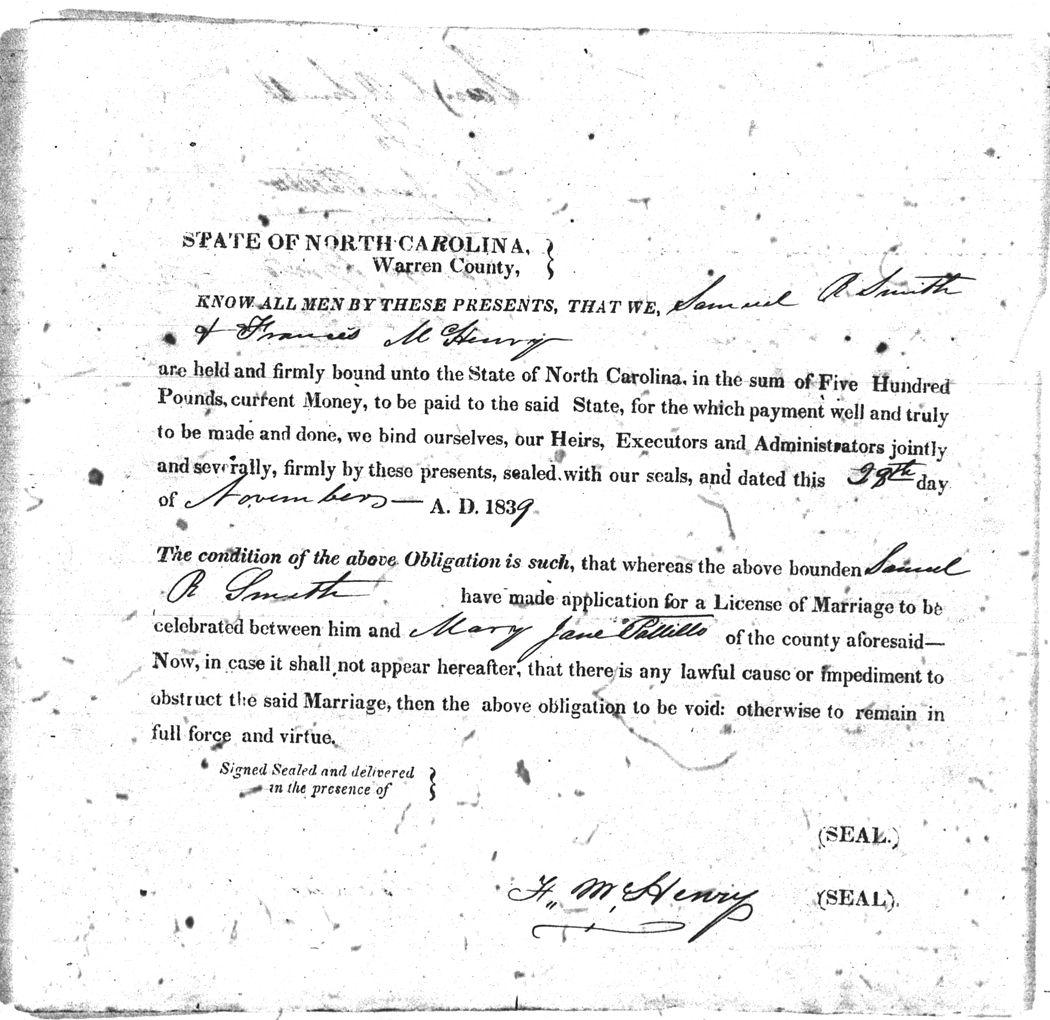 STATE OF NORTH CAROLINA,
Warren County,
KNOW ALL MEN BY THESE PRESENTS, THAT WE, Samuel R Smith
& Francis McHenry
are held and firmly bound unto the State of North Carolina, in the sum of Five Hundred
Pounds, current Money, to be paid to the said State, for the which payment well and truly
to be made and done, we bind ourselves, our Heirs, Executors and Administrators jointly
and severally, firmly by these presents, sealed with our seals, and dated this 28th day
of November — A. D. 1839
The condition of the above Obligation is such, that whereas the above bounden Samuel
R Smith have made application for a License of Marriage to be
celebrated between him and Mary Jane Pattillo of the county aforesaid—
Now, in case it shall not appear hereafter, that there is any lawful cause or impediment to
obstruct the said Marriage, then the above obligation to be void: otherwise to remain in
full force and virtue.
Signed Sealed and delivered
in the presence of
(SEAL.)
F,, McHenry (SEAL).